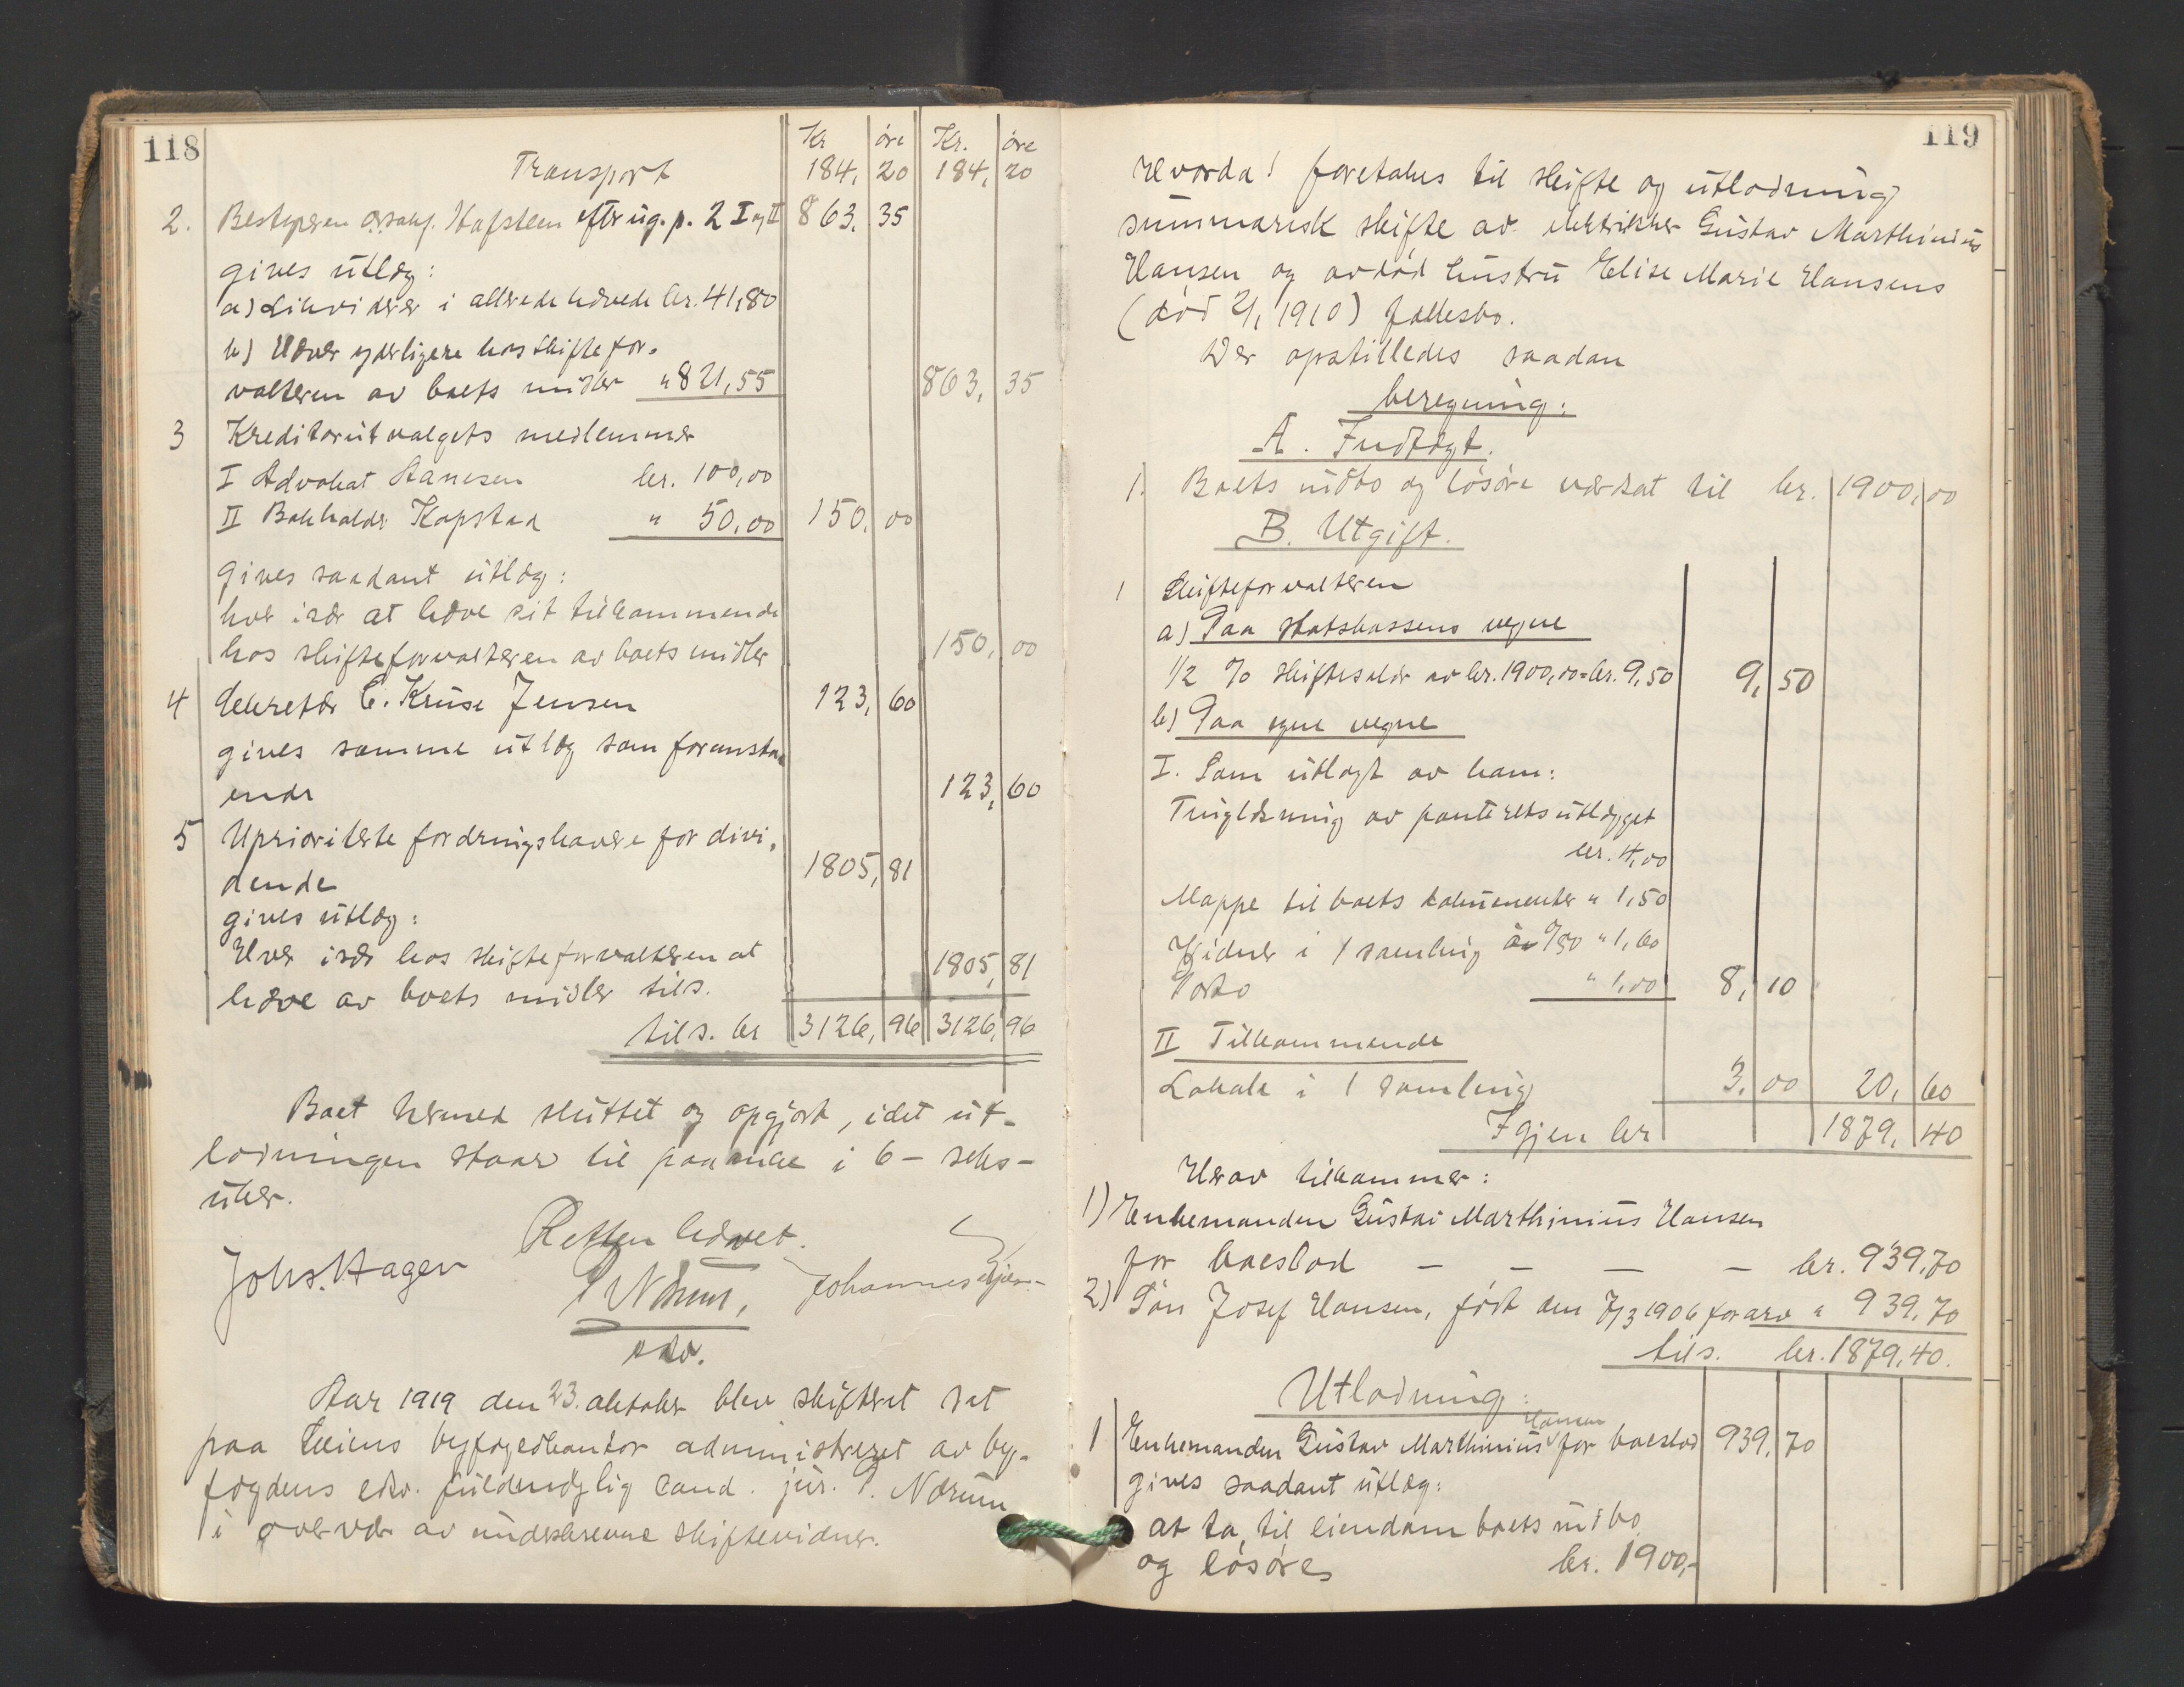 118
Kr øre Kr. øre
Transport 184, 20 184, 20
2. Bestyreren o.r.sakf. Hafstein efter ug. p. 2 I og II 863, 35
gives utlæg:
a) Likviderer i allerede hævede kr. 41,80
b) Hæver yderligere hos skiftefor-
valteren av boets midler " 821,55 863, 35
3 Kreditorutvalgets medlemmer
I Advokat Aanesen kr. 100,00
II Bokholder Kopstad " 50,00 150, 00
gives saadant utlæg:
hver især at hæve sit tilkommende
hos skifteforvalteren av boets midler 150, 00
4 Sekretær C. Kruse Jensen 123, 60
gives samme utlæg som foranstaa-
ende 123, 60
5 Uprioriterte fordringshavere for divi-
dende 1805, 81
gives utlæg:
Hver især hos skifteforvalteren at
hæve av boets midler tils. 1805, 81
tils. kr 3126, 96 3126, 96
Boet hermed sluttet og opgjort, idet ut-
lodningen staar til paaanke i 6 - seks -
uker.
Retten hævet.
Johs. Hagen P Nærum, Johannes
edv.
Aar 1919 den 23. oktober blev skifteret sat
paa Skiens byfogedkontor administreret av by-
fogdens edsv. fuldmægtig cand. jur. P. Nærum
i overvær av underskrevne skiftevidner.
119
Hvorda! foretakes til skifte og utlodning
summarisk skifte av elektriker Gustav Marthinius
Hansen og avdød hustru Elise Marie Hansens
(død 2/1 1910) fællesbo.
Der opstilledes saadan
beregning:
A. Indtægt.
1. Boets indbo og løsøre værdsat til kr. 1900, 00
B. Utgift.
1 Skifteforvalteren
a) Paa statskassens vegne
1/2 % skiftesalær av kr. 1900,00 = kr. 9,50 9, 50
b) Paa egne vegne
I. Som utlagt av ham:
Tinglæsning av panteretsutlægget
kr. 4,00
Mappe til boets dokumenter " 1,50
Vidner i 1 samling av 0/80 " 1,60
Porto " 1,00 8, 10
II Tilkommende
Lokale i 1 samling 3, 00 20, 60
Igjen kr 1879, 40
Herav tilkommer:
1) Enkemanden Gustav Marthinius Hansen
for boeslod - - - - kr. 939,70
2) Søn Josef Hansen, født den 7/3 1906 for arv " 939,70
tils. kr. 1879,40.
Utlodning:
Hansen
1 Enkemanden Gustav Marthinius for boeslod 939, 70
gives saadant utlæg:
at ta til eiendom boets indbo
og løsøre kr. 1900,-